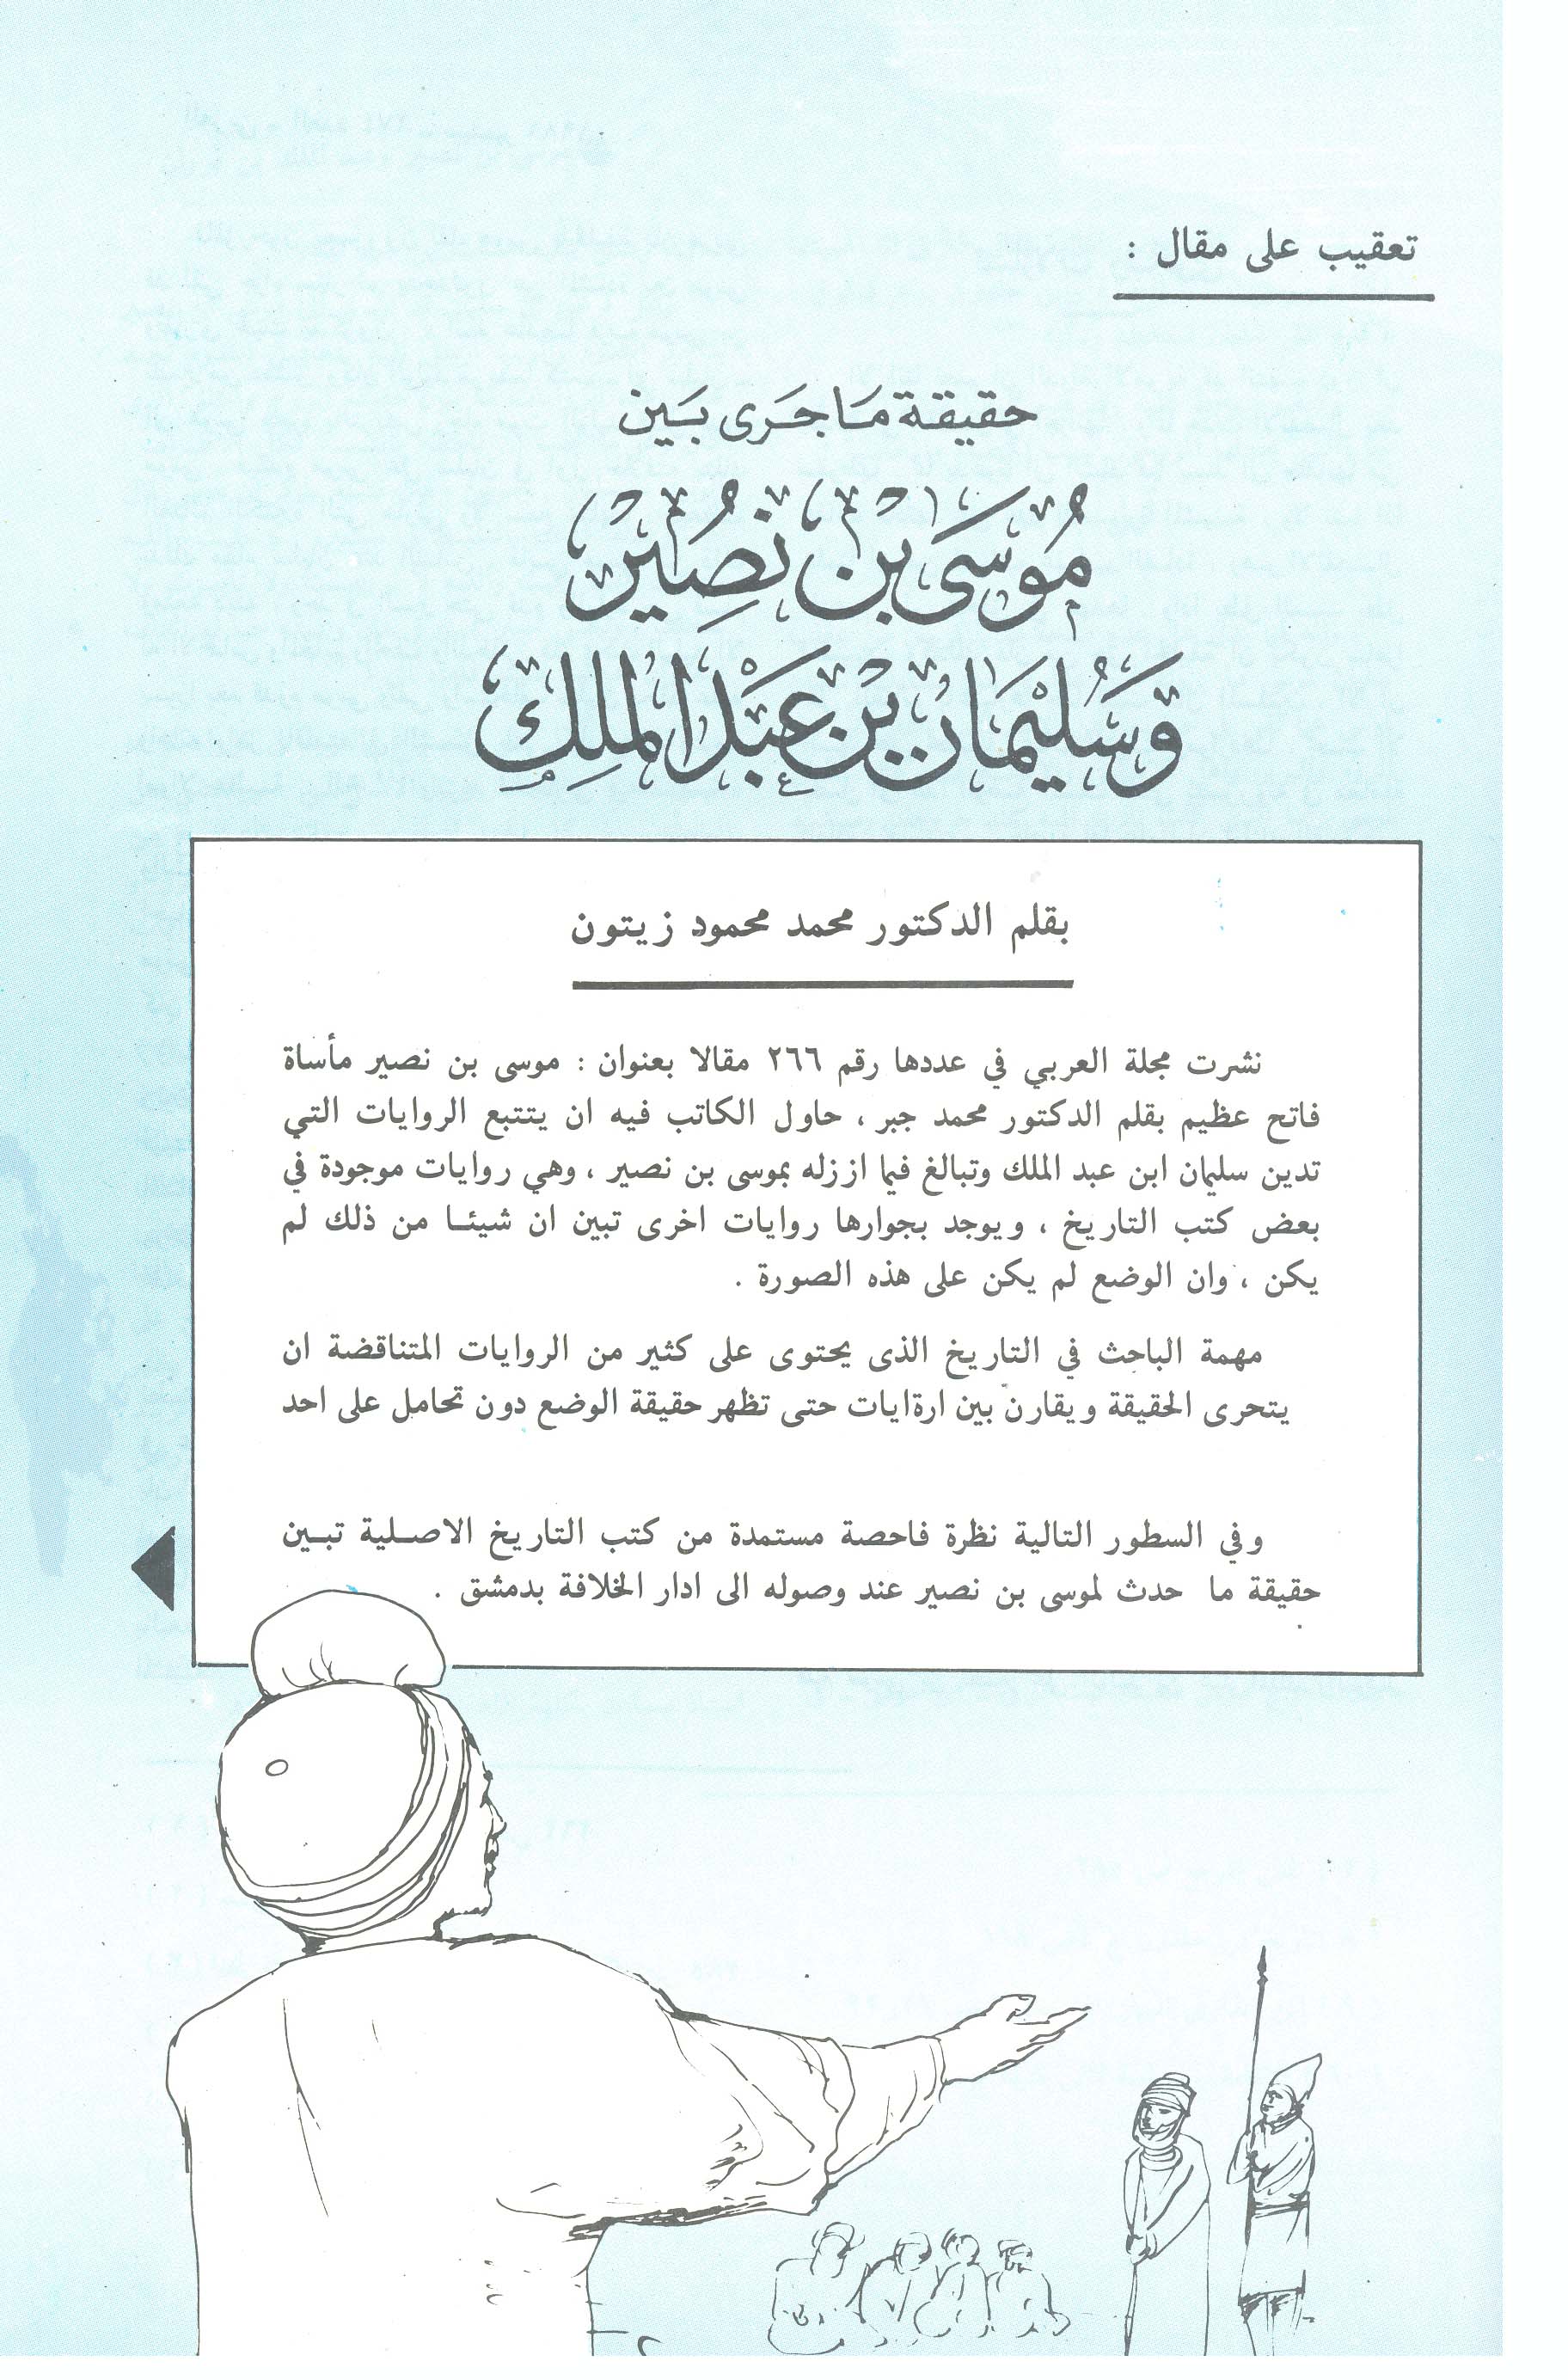 تعقيب على مقال :
حقيقة ما جرى بين
موسى بن نصير
وسليمان بن عبد الملك
بقلم الدكتور محمد محمود زيتون
نشرت مجلة العربي في عددها رقم ٢٦٦ مقالا بعنوان : موسى بن نصير مأساة
فاتح عظيم بقلم الدكتور محمد جبر ، حاول الكاتب فيه ان يتتبع الروايات التي
تدين سليمان ابن عبد الملك وتبالغ فيما اززله بموسى بن نصير ، وهي روايات موجودة في
بعض كتب التاريخ ، ويوجد بجوارها روايات اخرى تبين ان شيئا من ذلك لم
يكن ، وان الوضع لم يكن على هذه الصورة .
مهمة الباحث في التاريخ الذى يحتوى على كثير من الروايات المتناقضة ان
يتحرى الحقيقة ويقارن بين ارةايات حتى تظهر حقيقة الوضع دون تحامل على احد
وفي السطور التالية نظرة فاحصة مستمدة من كتب التاريخ الاصلية تبين
حقيقة ما حدث لموسى بن نصير عند وصوله الى ادار الخلافة بدمشق .